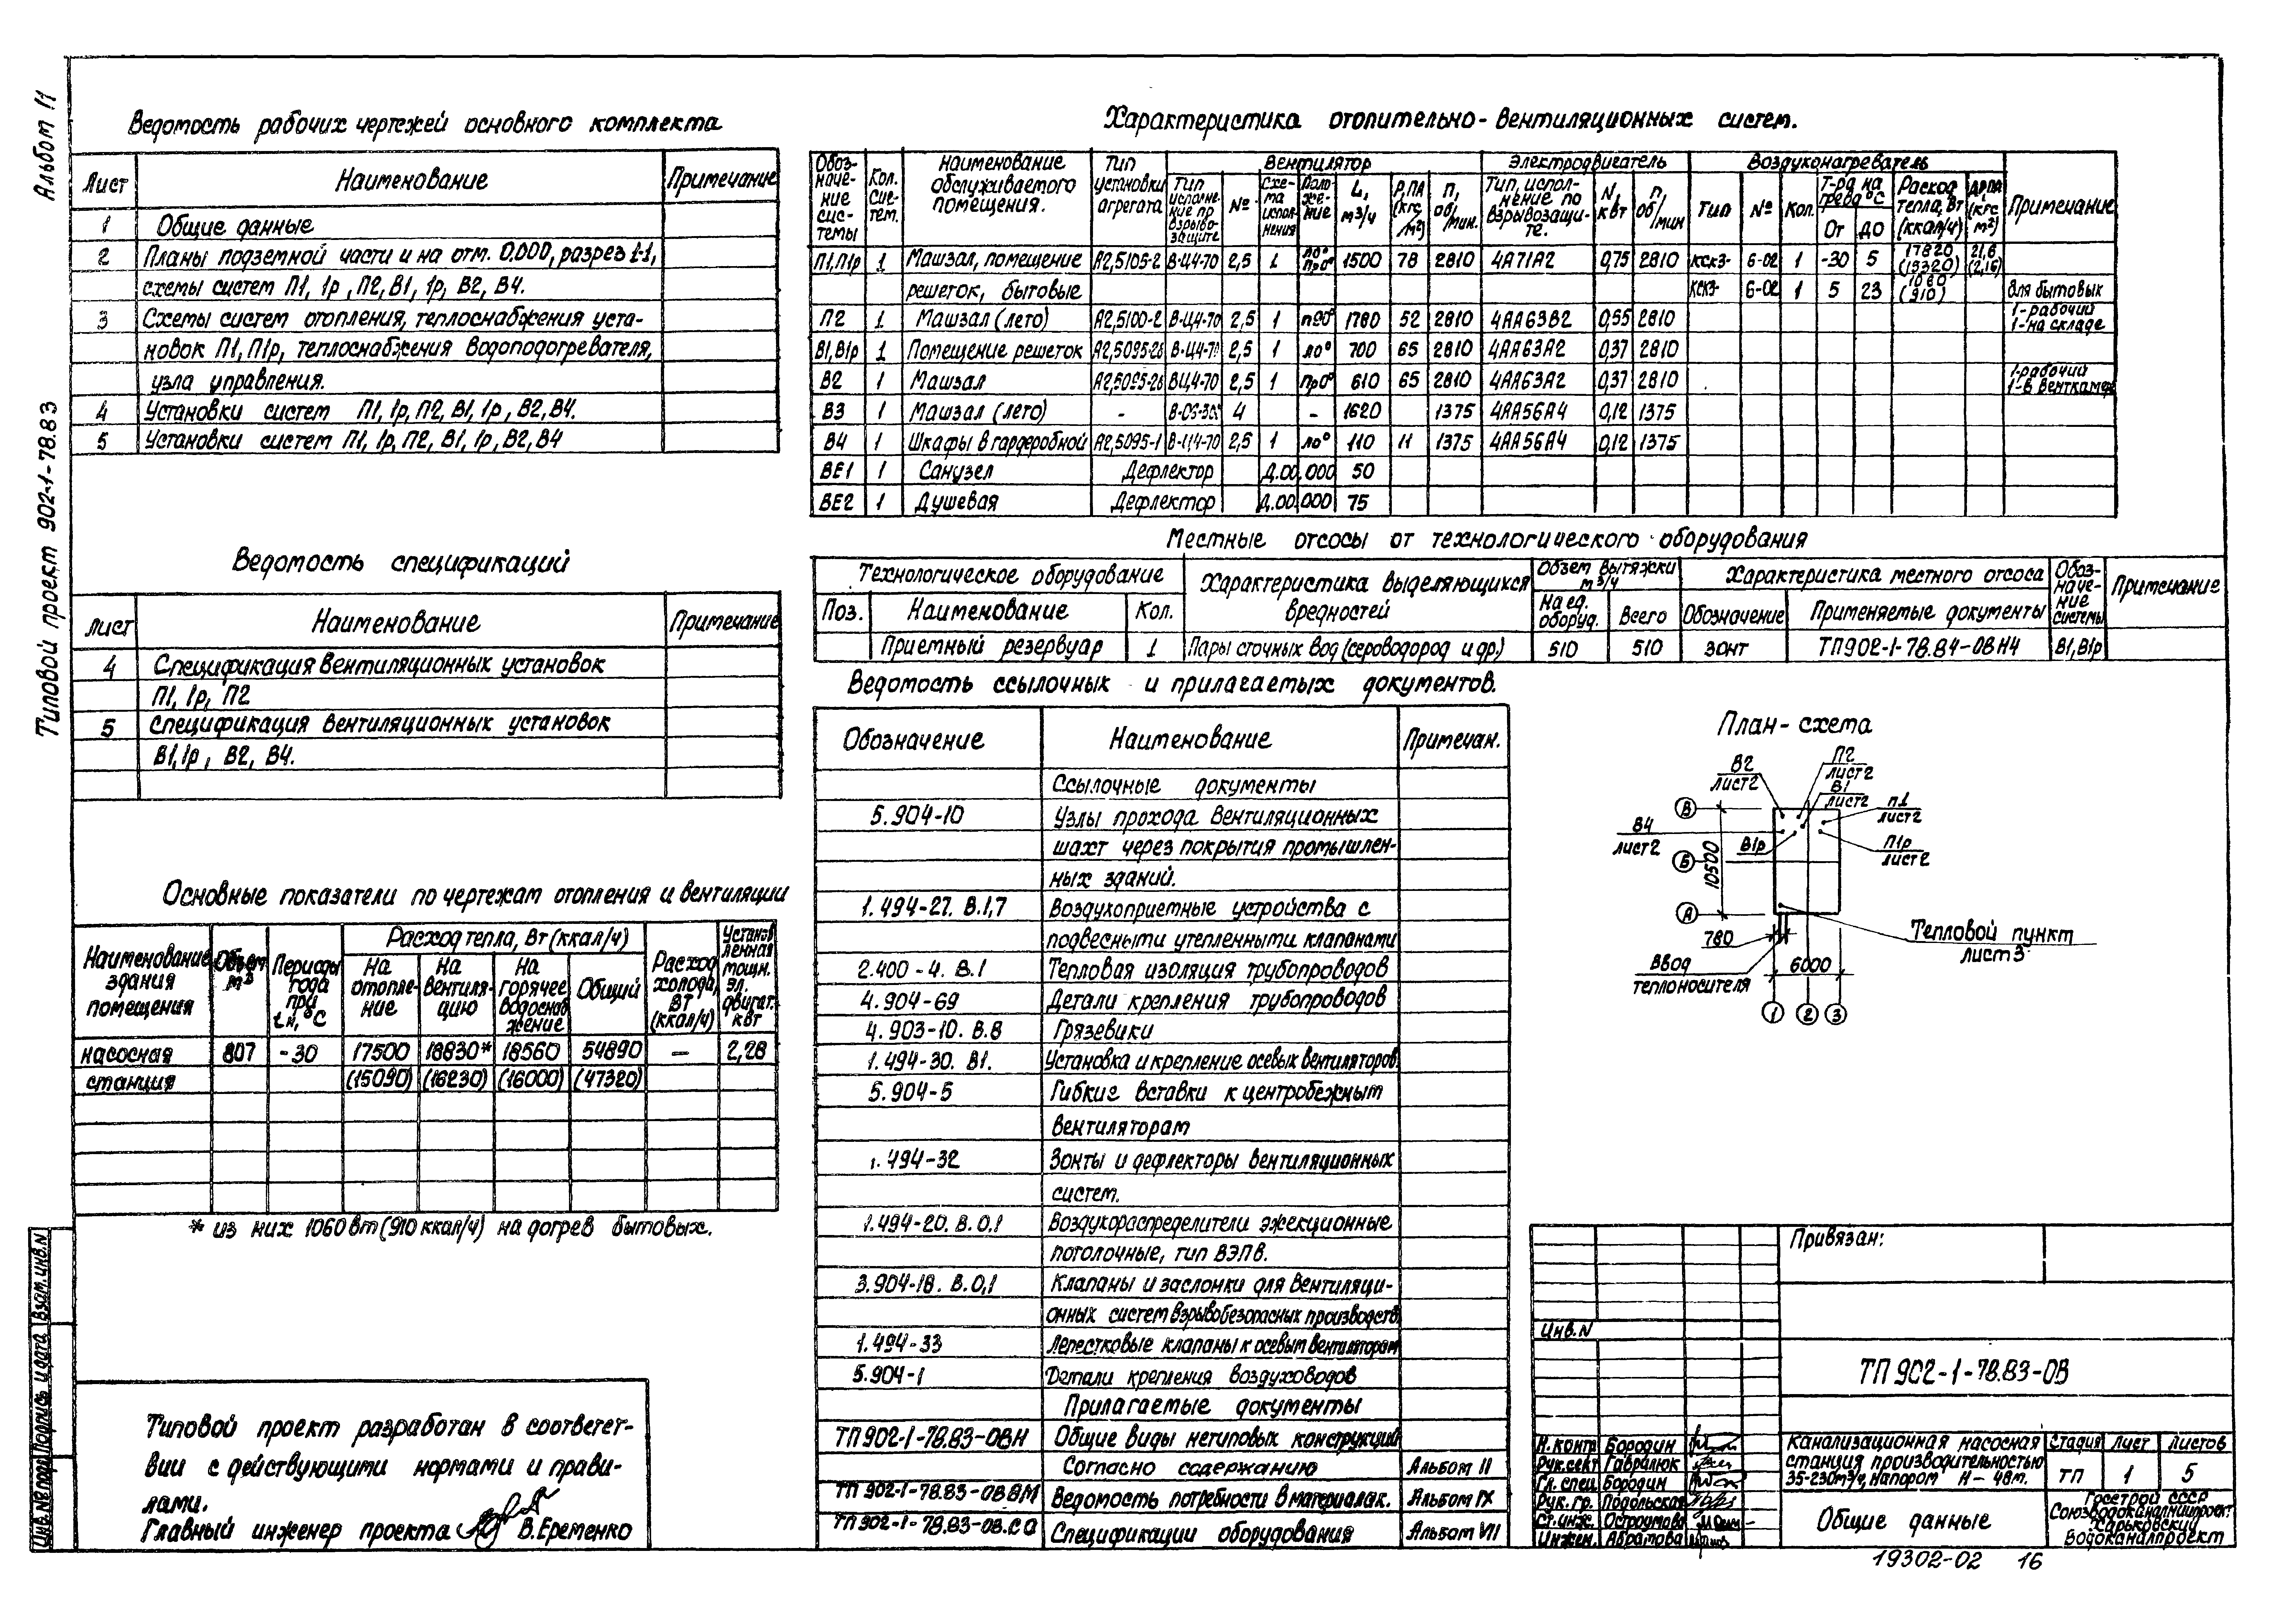 Альбом II
Типовой проект 902-1-78.83
Ведомость рабочих чертежей основного комплекта
Лист Наименование Примечание
1 Общие данные
2 Планы подземной части и на отм. 0.000, разрез 1-1,
схемы систем П1, 1р, П2, В1, 1р, В2, В4.
3 Схемы систем отопления, теплоснабжения уста-
новок П1, П1р, теплоснабжения водоподогревателя,
узла управления.
4 Установки систем П1, 1р, П2, В1, 1р, В2, В4.
5 Установки систем П1, 1р, П2, В1, 1р, В2, В4
Ведомость спецификаций
Лист Наименование Примечание
4 Спецификация вентиляционных установок
П1, 1р, П2
5 Спецификация вентиляционных установок
В1, 1р, В2, В4.
Основные показатели по чертежам отопления и вентиляции
Наименование здания помещения Объем м³ Периоды года при tн, °С Расход тепла, Вт (ккал/ч) Расход холода, Вт (ккал/ч) Установленная мощн. эл. двигат. квт
На отопление На вентиляцию На горячее водоснабжение Общий
насосная 807 -30 17500 18830* 18560 54890 — 2,28
станция (15090) (16230) (16000) (47320)
* из них 1060 вт (910 ккал/ч) на догрев бытовых.
Типовой проект разработан в соответст-
вии с действующими нормами и прави-
лами.
Главный инженер проекта В. Еременко
Характеристика отопительно-вентиляционных систем.
Обозначение системы Кол. систем. Наименование обслуживаемого помещения. Тип установки агрегата Вентилятор Электродвигатель Воздухонагреватель Примечание
Тип исполнение по взрывозащите № Схема исполнения Положение L, м³/ч Р, ПА (кгс/м²) п, об/мин. Тип, исполнение по взрывозащите. N, квт п, об/мин Тип № Кол. Т-ра нагрева °С От до Расход тепла, Вт (ккал/ч) ΔР, ПА (кгс/м²)
П1, П1р 1 Машзал, помещение А2,5105-2 В-Ц4-70 2,5 1 Л0° Пр0° 1500 78 2810 4А71А2 0,75 2810 КСК3- 6-02 1 -30 5 17820 (15320) 21,6 (2,16)
решеток, бытовые КСК3- 6-02 1 5 23 1060 (910) Для бытовых
П2 1 Машзал (лето) А2,5100-2 В-Ц4-70 2,5 1 П90° 1780 52 2810 4АА63В2 0,55 2810 1-рабочий 1-на складе
В1, В1р 1 Помещение решеток А2,5095-2б В-Ц4-70 2,5 1 Л0° 700 65 2810 4АА63А2 0,37 2810
В2 1 Машзал А2,5095-2б ВЦ4-70 2,5 1 Пр0° 610 65 2810 4АА63А2 0,37 2810 1-рабочий 1-в венткамере
В3 1 Машзал (лето) - В-06-300 4 - 1620 1375 4АА56А4 0,12 1375
В4 1 Шкафы в гардеробной А2,5095-1 В-Ц4-70 2,5 1 Л0° 110 11 1375 4АА56А4 0,12 1375
ВЕ1 1 Санузел Дефлектор Д.00.000 50
ВЕ2 1 Душевая Дефлектор Д.00.000 75
Местные отсосы от технологического оборудования
Технологическое оборудование Характеристика выделяющихся вредностей Объем вытяжки м³/ч Характеристика местного отсоса Обозначение системы Примечание
Поз. Наименование Кол. На ед. оборуд. Всего Обозначение Применяемые документы
Приемный резервуар 1 Пары сточных вод (сероводород и др.) 510 510 зонт ТП902-1-78.84-ОВН4 В1, В1р
Ведомость ссылочных и прилагаемых документов.
Обозначение Наименование Примечан.
Ссылочные документы
5.904-10 Узлы прохода вентиляционных
шахт через покрытия промышлен-
ных зданий.
1.494-27. В.1,7 Воздухоприемные устройства с
подвесными утепленными клапанами
2.400-4. В.1 Тепловая изоляция трубопроводов
4.904-69 Детали крепления трубопроводов
4.903-10. В.8 Грязевики
1.494-30. В1. Установка и крепление осевых вентиляторов.
5.904-5 Гибкие вставки к центробежным
вентиляторам
1.494-32 Зонты и дефлекторы вентиляционных
систем.
1.494-20. В.0,1 Воздухораспределители эжекционные
потолочные, тип ВЭПВ.
3.904-18. В.0,1 Клапаны и заслонки для вентиляци-
онных систем взрывобезопасных производств
1.494-33 Лепестковые клапаны к осевым вентиляторам
5.904-1 Детали крепления воздуховодов
Прилагаемые документы
ТП902-1-78.83-ОВН Общие виды нетиповых конструкций
Согласно содержанию Альбом II
ТП 902-1-78.83-ОВВМ Ведомость потребности в материалах. Альбом IX
ТП902-1-78.83-ОВ.СО Спецификации оборудования Альбом VII
План-схема
В2 лист2
П2 лист2
В1 лист2
П1 лист2
В4 лист2
В1р
П1р лист2
В
Б
А
10500
780
6000
Тепловой пункт
лист3
Ввод
теплоносителя
1 2 3
Привязан:
Инв. N
ТП 902-1-78.83-ОВ
Н. контр Бородин
Рук. сект Гаврилюк
Гл. спец Бородин
Рук. гр. Подольская
Ст. инж. Остроумова
Инжен. Абрамова
Канализационная насосная
станция производительностью
35-230м³/ч, напором Н- 48м.
Стадия Лист Листов
ТП 1 5
Общие данные
Госстрой СССР
Союзводоканалниипроект
Харьковский
Водоканалпроект
19302-02 16
Инв. № подл. Подпись и дата Взам. инв. N